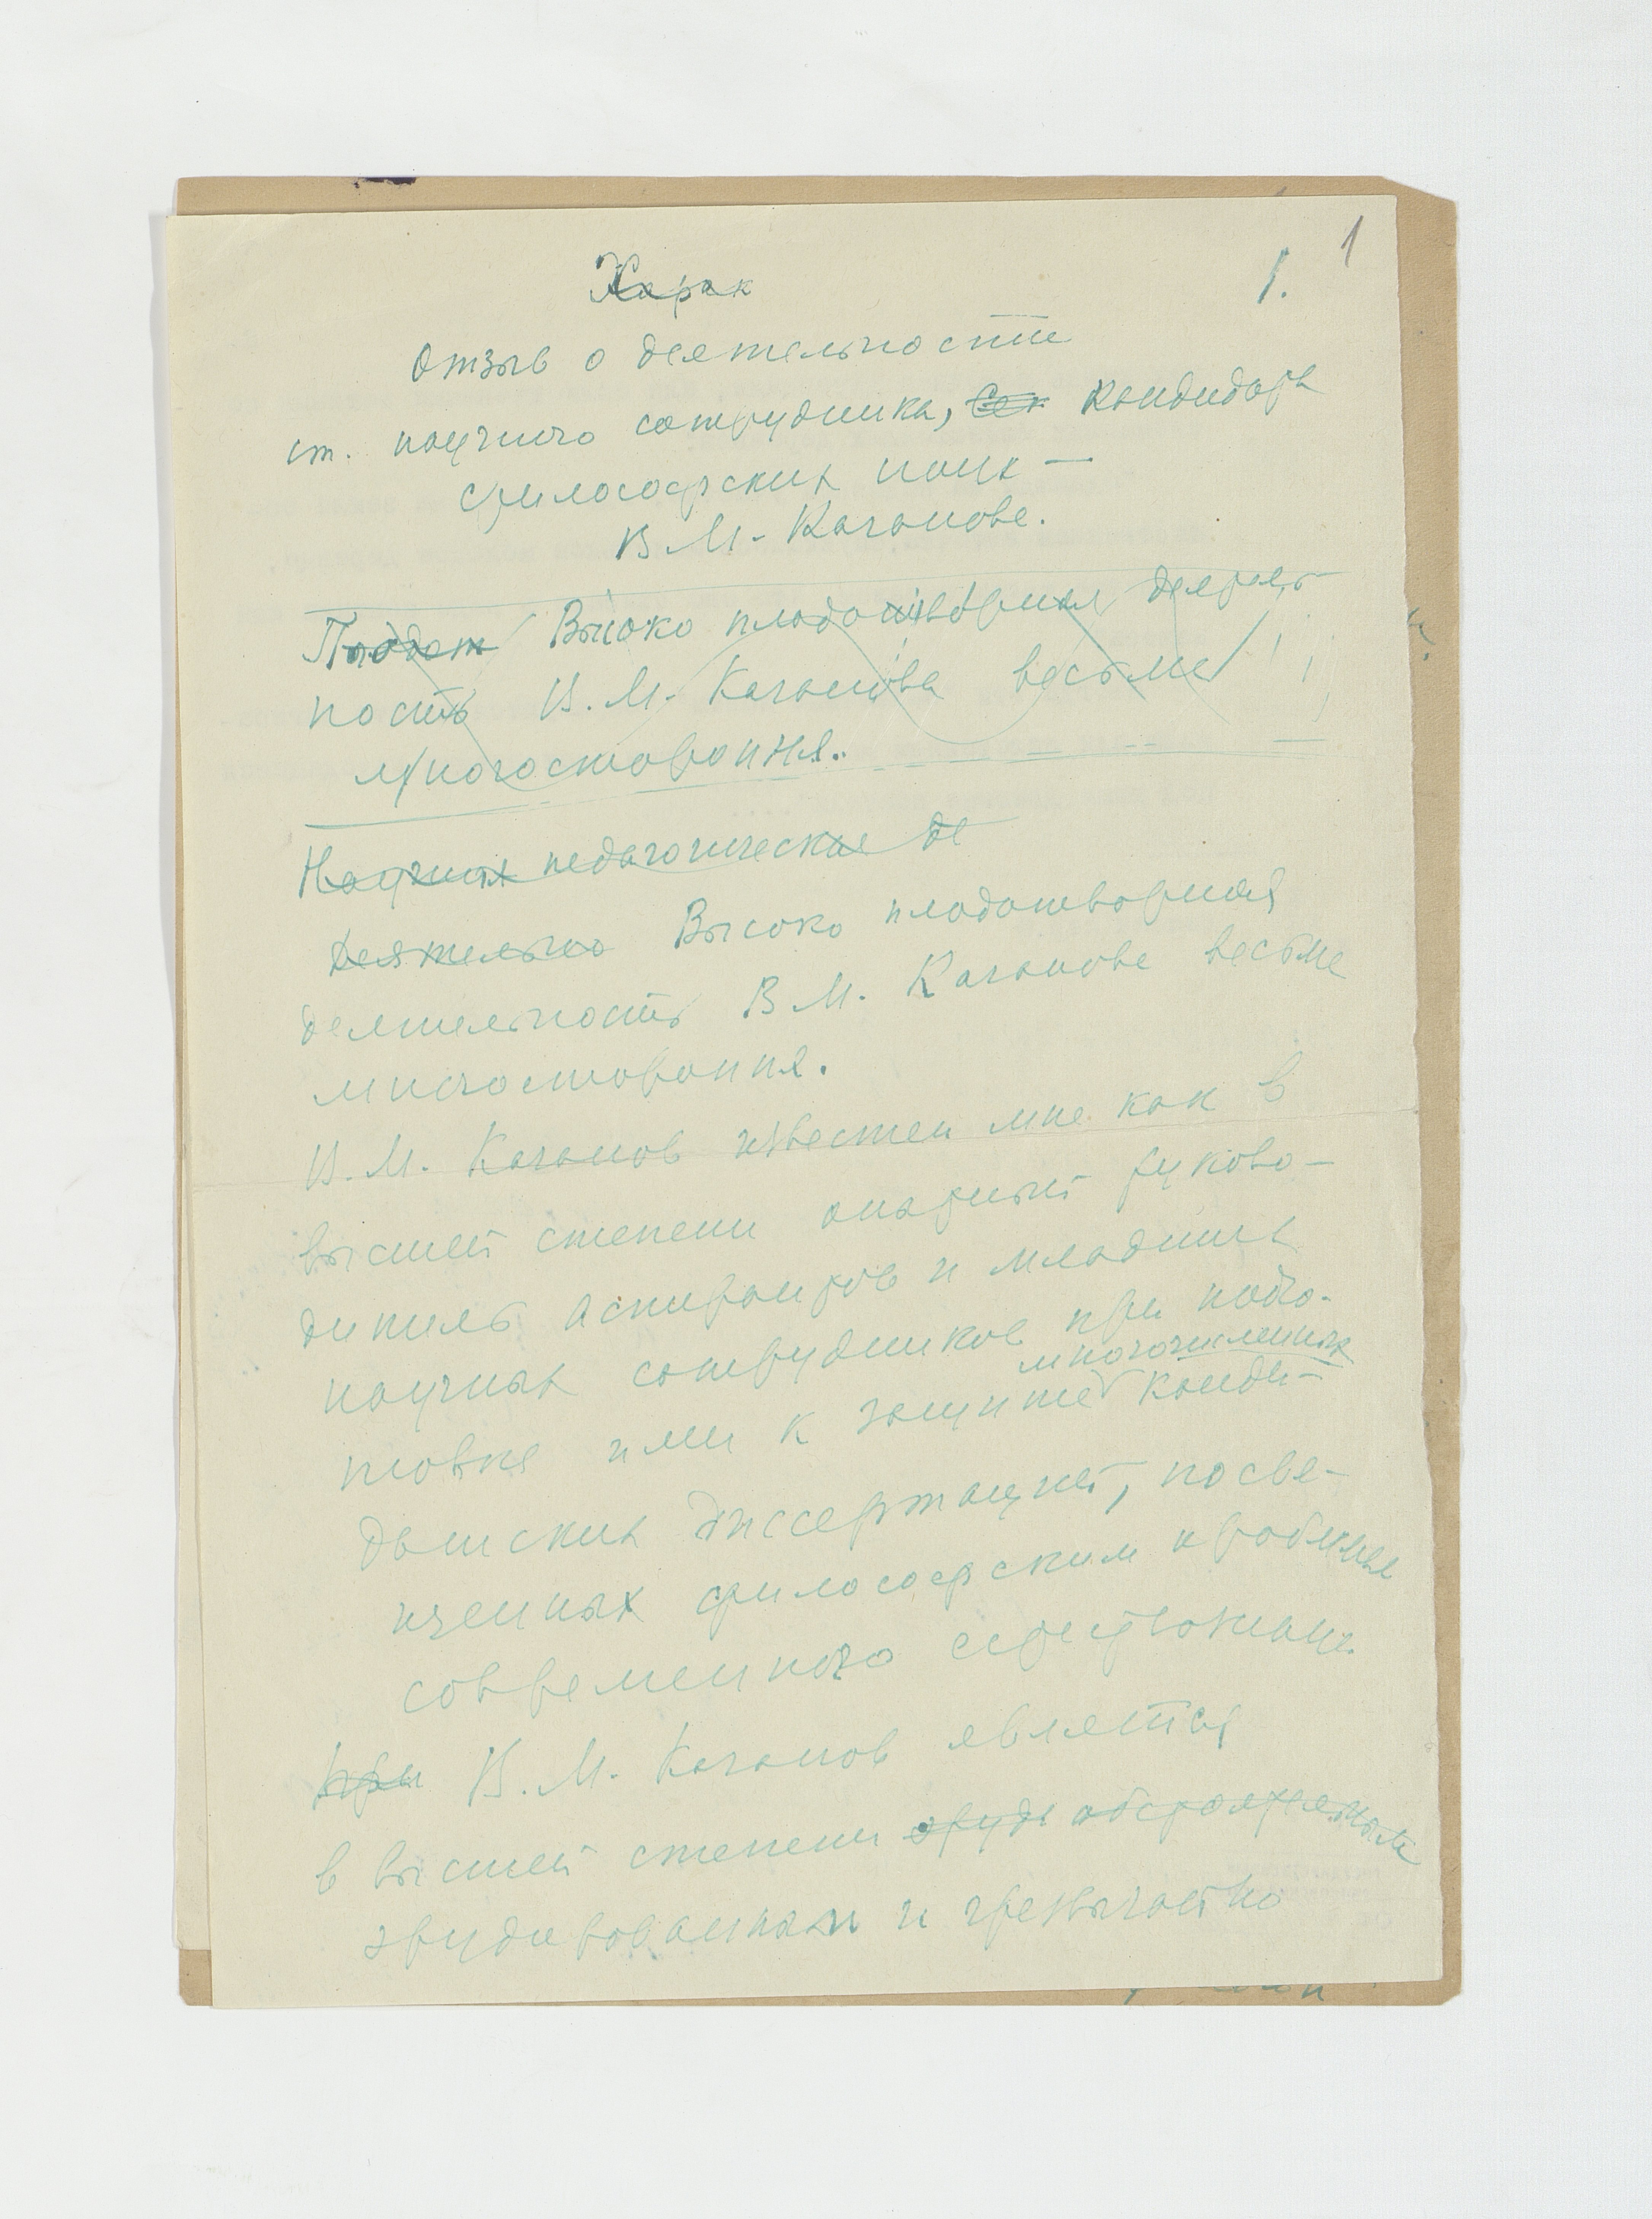 1
1.
Харак
Отзыв о деятельности
ст. научного сотрудника, Сек кандидата
философских наук —
В. М. Каганове.
Плодот Высоко плодотворная деятель
ность В. М. Каганова весьма
многостороння.
Научная педагогическая де
Деятельно Высоко плодотворная
деятельность В. М. Каганова весьма
многостороння.
В. М. Каганов известен мне как в
высшей степени опытный руково-
дитель аспирантов и младших
научных сотрудников при подго-
многочисленных
товке ими к защите канди-
датских диссертаций, посвя-
щенных философским проблемам
современного естествознани
при В. М. Каганов является
в высшей степени эруди обстоятельным
эрудированным и чрезвычайно